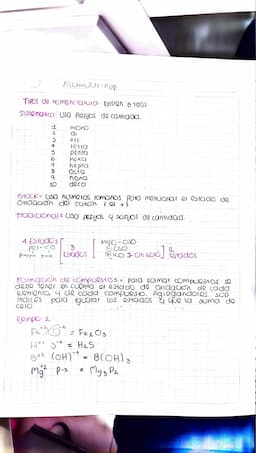 Tipos de nomenclatura: Existen 3 tipos:
Sistematica: Usa Prefijos de cantidad.
1 mono
2 di
3 tri
4 tetra
5 penta
6 hexa
7 hepta
8 octa
9 nona
10 deca
Stock: Usa números romanos para mencionar el estado de
oxidación del catión (+)
Tradicional: Usa prefijos y sufijos de cantidad.
4 Estados
3 Estados
hipo-oso
2 Estados
Formación de compuestos: Para formar compuestos se
debe tener en cuenta el estado de oxidación de cada
elemento y de cada compuesto. Agregandoles sub
índices para igualar los estados y que la suma de
cero.
Ejemplo:
Fe+3 O-2 = Fe2O3
H+1 S-2 = H2S
B+3 (OH)-1 = B(OH)3
Mg+2 P-3 = Mg3P2